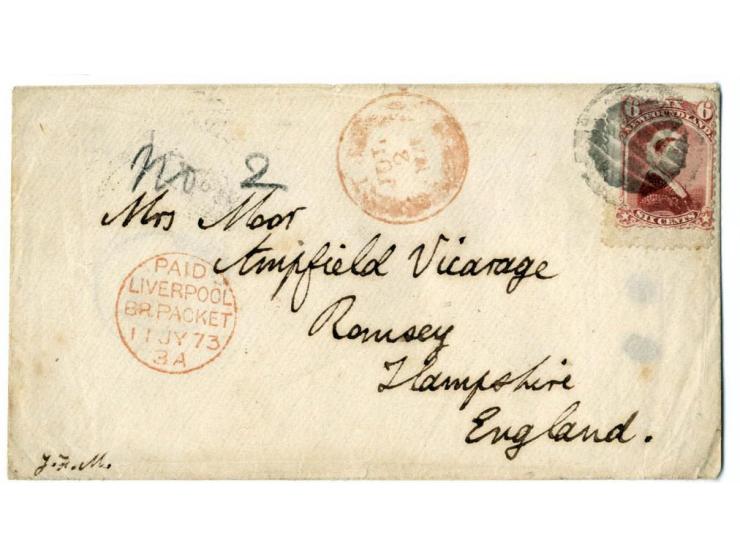 6 SIX 6
NEWFOUNDLAND
SIX CENTS
JUL
2
No 2
Mrs Moor
Ampfield Vicarage
Romsey
Hampshire
England.
PAID
LIVERPOOL
BR.PACKET
11 JY 73
3A
J.F.M.